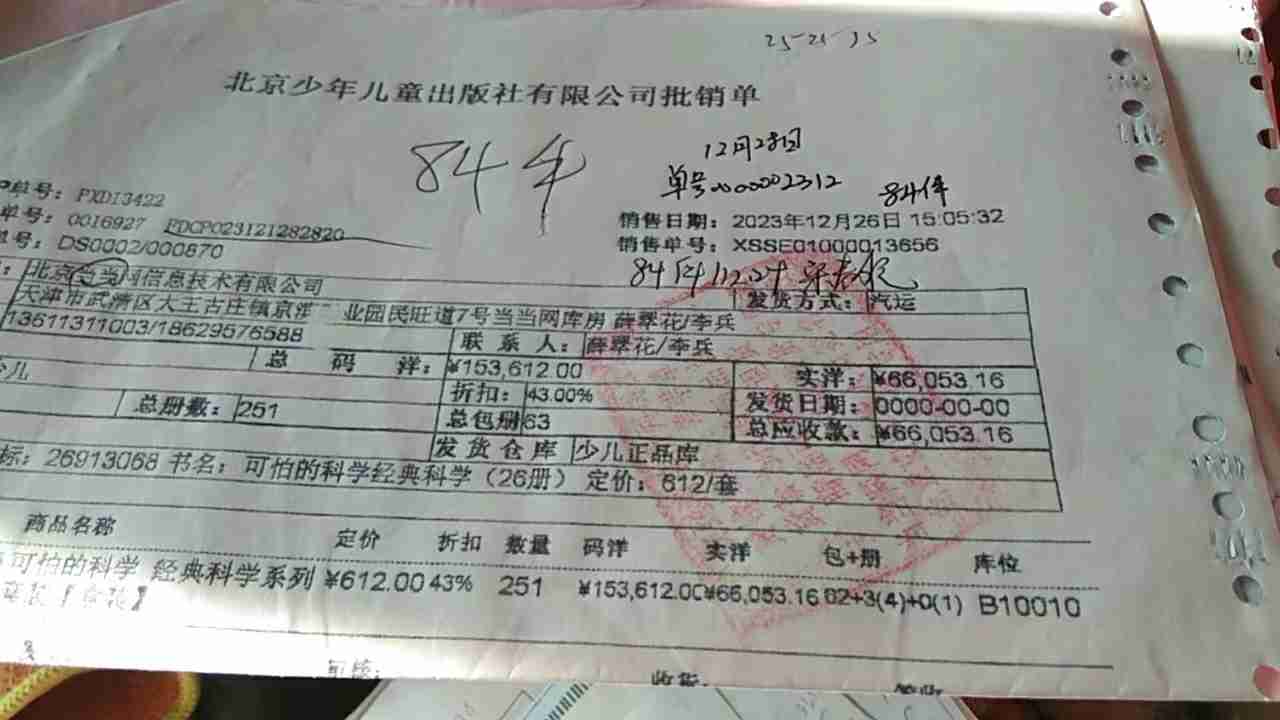 25-21-35
北京少年儿童出版社有限公司批销单
84件
12月28日
单号00002312 84件
单号: PXD13422
单号: 0016927 PDCP023121282820
销售日期: 2023年12月26日 15:05:32
单号: DS0002/000870
销售单号: XSSE01000013656
84件 12.24
北京当当网信息技术有限公司
发货方式: 汽运
天津市武清区大王古庄镇京 业园民旺道7号当当网库房 薛翠花/李兵
13611311003/18629576588
联系人: 薛翠花/李兵
总码洋: ¥153,612.00 实洋: ¥66,053.16
少儿
折扣: 43.00% 发货日期: 0000-00-00
总册数: 251 总包册 63 总应收款: ¥66,053.16
发货仓库 少儿正品库
标: 26913068 书名: 可怕的科学经典科学(26册) 定价: 612/套
商品名称 定价 折扣 数量 码洋 实洋 包+册 库位
可怕的科学 经典科学系列 ¥612.00 43% 251 ¥153,612.00 ¥66,053.16 02+3(4)+0(1) B10010
复核: 收货: